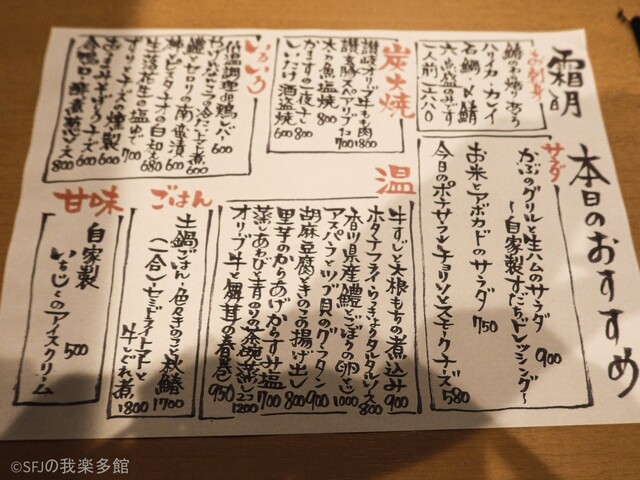 霜月
本日のおすすめ
お刺身
鰆のわら焼りあぶり
ハリイカ・カレイ
石鯛・〆鯖
六点盛のみです
一人前一六八〇
炭火焼
讃岐オリーブ牛もも肉 1800
讃玄豚スペアリブ1コ 700
本日の魚塩焼 800
かますの一夜干し 800
しいたけ酒盗焼 600
いろいろ
低温調理の鶏レバー 600
鱧とセロリの南蛮漬 600
柿とピスタチオの白和え 680
生落花生の塩ゆで 700
すじことチーズの燻製 600
おつまみそばチーズ 600
合鴨ロース酢煮葱ソース 800
サラダ
かぶのグリルと生ハムのサラダ
〜自家製すだちドレッシング〜 900
お米とアボカドのサラダ 750
今日のポテサラ チョリソとスモークチーズ 580
温
牛すじと大根もちの煮込み 900
ホタテフライ・らっきょタルタルソース 800
香川県産鱧とごぼうの卵とじ 1000
アスパラとツブ貝のグラタン 900
胡麻豆腐ときのこの揚げ出し 800
里芋のからあげからすみ塩 700
蒸しあわびと青のりの茶碗蒸 1200
オリーブ牛と舞茸の春巻 950
ごはん
土鍋ごはん・色々きのこと秋鰆 1700
(一合)・セミドライトマトと
牛しぐれ煮 1800
甘味
自家製
いちじくのアイスクリーム 500
©SFJの我楽多館